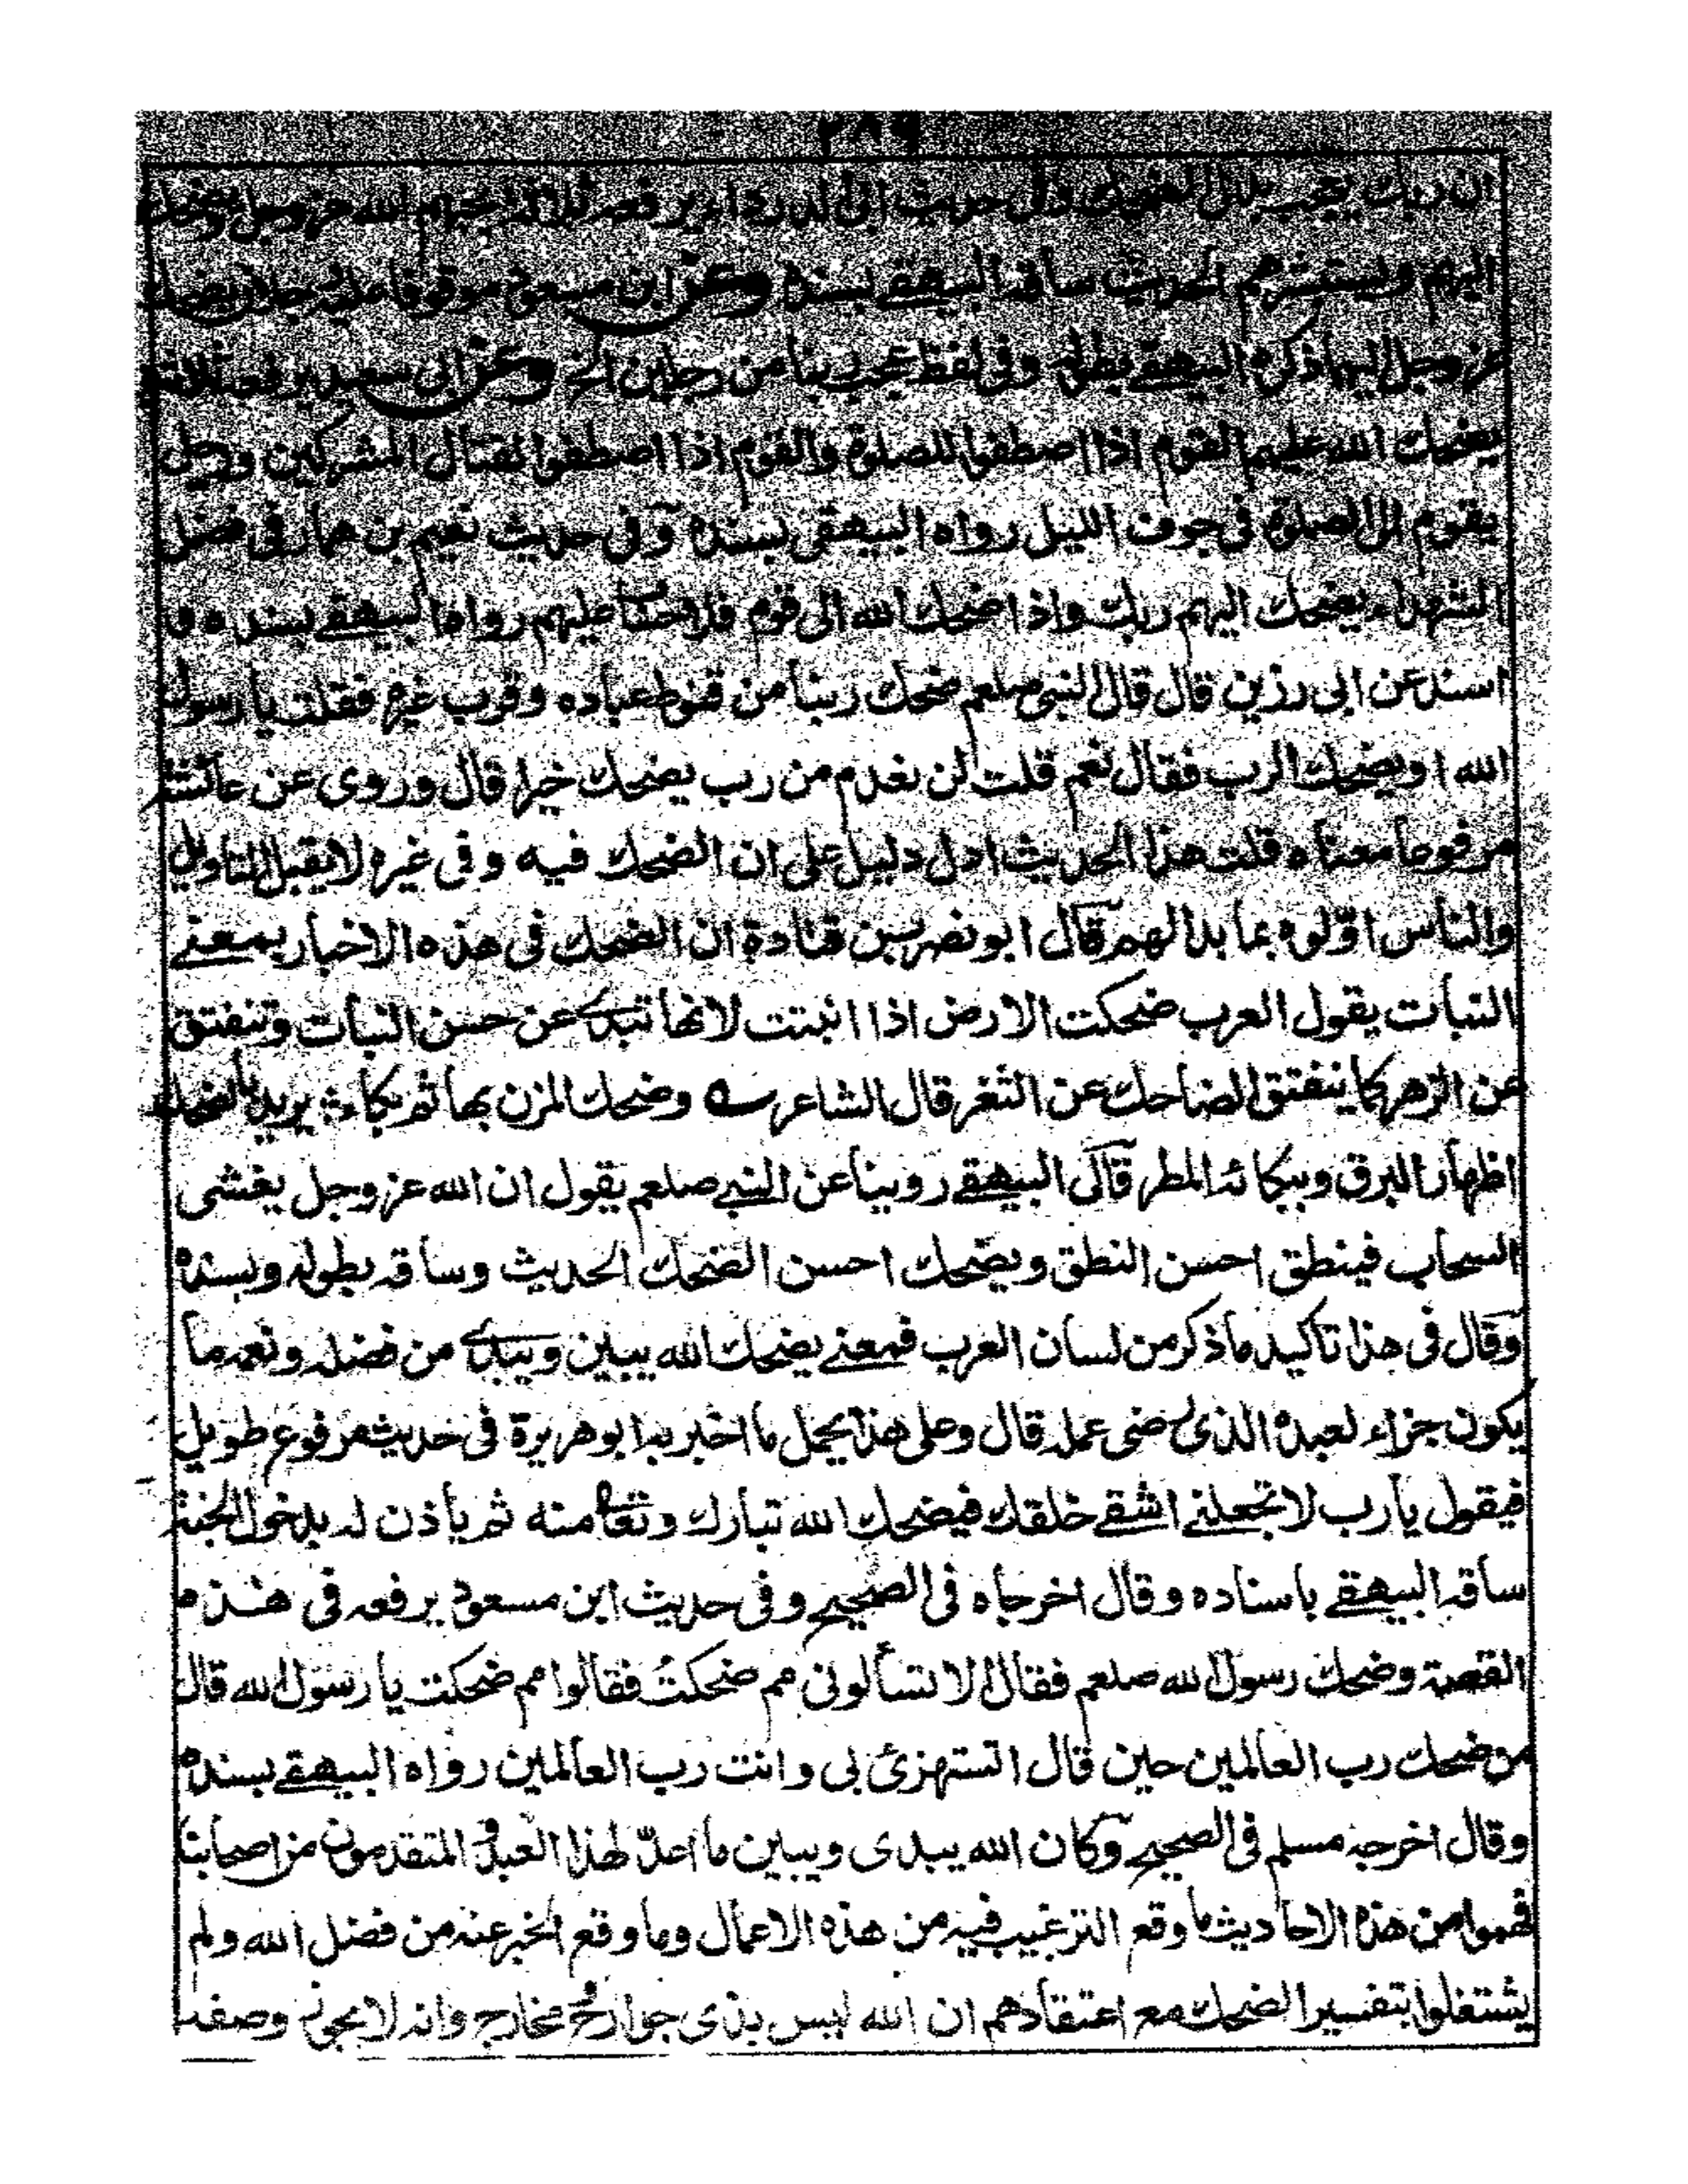 ٢٨٩
ان ربك يعجب بدل الضحك وفى حديث ابى الدرداء يرفعه ثلاثة يحبهم الله عز وجل ويضحك
اليهم ويستبشرهم الحديث ساقه البيهقے بسنده وعن ابن مسعود موقوفا عليه رجلان يضحك
عز وجل اليهما ذكره البيهقے بطوله وفى لفظ عجب ربنا من رجلين الخ وعن ابى سعيد يرفعه ثلاثة
يضحك الله عليهم القوم اذا اصطفوا للصلوة والقوم اذا اصطفوا لقتال المشركين ورجل
يقوم الى الصلوة فى جوف الليل رواه البيهقى بسنده وفى حديث نعيم بن همار فى فضل
الشهداء يضحك اليهم ربك واذا ضحك الله الى قوم فلا حساب عليهم رواه البيهقے بسنده
اسند عن ابى رزين قال قال النبى صلعم ضحك ربنا من قنوط عباده وقرب غيره فقلت يا رسول
الله او يضحك الرب فقال نعم قلت لن نعدم من رب يضحك خيرا قال وروى عن عائشة
مرفوعا معناه قلت هذا الحديث ادل دليل على ان الضحك فيه وفى غيره لا يقبل التاويل
والناس اوّلوه بما بدا لهم قال ابو نصر بن قتادة ان الضحك فى هذه الاخبار بمعنے
النبات يقول العرب ضحكت الارض اذا انبتت لانها تبدے عن حسن النبات وتنفتق
عن الزهر كما ينفتق الضاحك عن الثغر قال الشاعر ؎ وضحك المزن بها ثم بكاء ؛ يريد بالضحك
اظهار البرق وببكائه المطر قال البيهقے روينا عن النبے صلعم يقول ان الله عز وجل يغشى
السحاب فينطق احسن النطق ويضحك احسن الضحك الحديث وساقه بطوله وبسنده
وقال فى هذا تاكيد ما ذكر من لسان العرب فمعنے يضحك الله يبين ويبدے من فضله ونعمه ما
يكون جزاء لعبده الذى رضى عمله قال وعلى هذا يحمل ما اخبر به ابو هريرة فى حديث مرفوع طويل
فيقول يا رب لا تجعلنے اشقے خلقك فيضحك الله تبارك وتعالى منه ثم يأذن له بدخول الجنة
ساقه البيهقے باسناده وقال اخرجاه فى الصحيح وفى حديث ابن مسعود يرفعه فى هذه
القصة وضحك رسول الله صلعم فقال الا تسألونى مم ضحكتُ فقالوا مم ضحكت يا رسول الله قال
من ضحك رب العالمين حين قال اتستهزئ بى وانت رب العالمين رواه البيهقے بسنده
وقال اخرجه مسلم فى الصحيح وكان الله يبدى ويبين ما اعدّ لهذا العبد والمتقدمون من اصحابنا
فهموا من هذه الاحاديث ما وقع الترغيب فيه من هذه الاعمال وما وقع الخبر عنه من فضل الله ولم
يشتغلوا بتفسير الضحك مع اعتقادهم ان الله ليس بذى جوارح ومخارج وانه لا يجوز وصفه